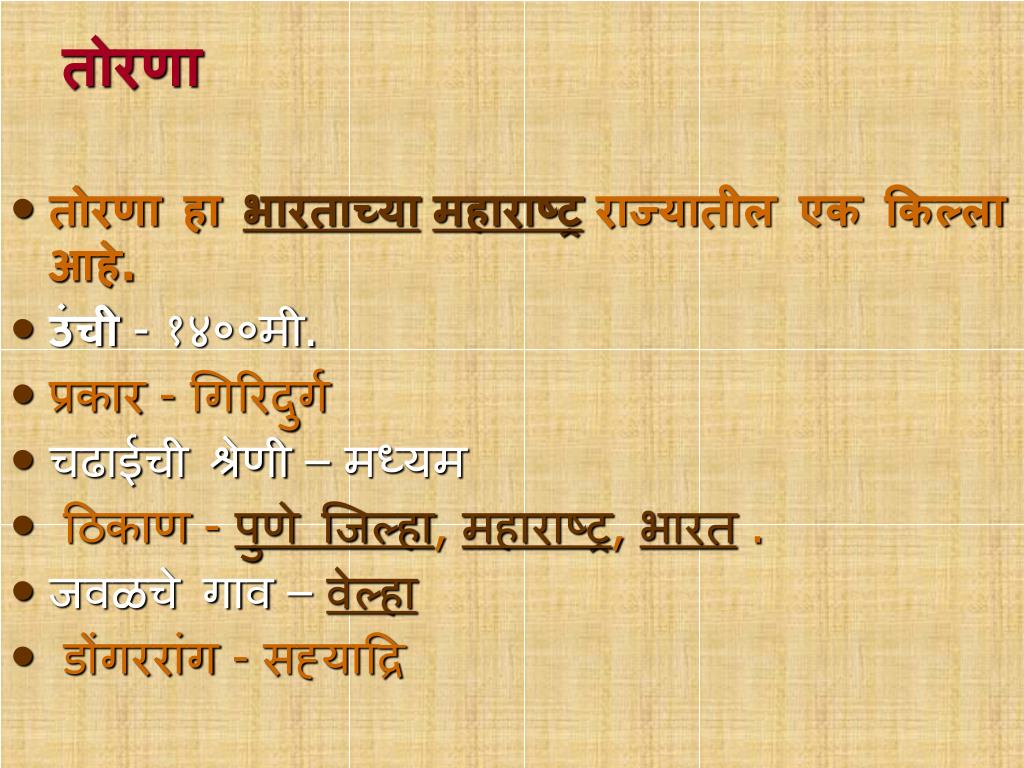 तोरणा
• तोरणा हा भारताच्या महाराष्ट्र राज्यातील एक किल्ला
आहे.
• उंची - १४००मी.
• प्रकार - गिरिदुर्ग
• चढाईची श्रेणी – मध्यम
• ठिकाण - पुणे जिल्हा, महाराष्ट्र, भारत .
• जवळचे गाव – वेल्हा
• डोंगररांग - सह्याद्रि